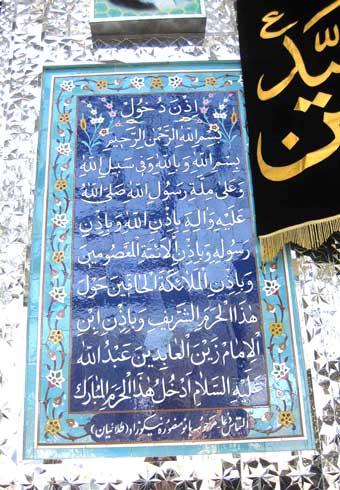 إذن دخول
بسم الله الرحمن الرحیم
بسم الله و بالله و فی سبیل الله
و علی ملة رسول الله صلی الله
علیه و اله باذن الله و باذن
رسوله و باذن الائمة المعصومین
و باذن الملائکة الحافین حول
هذا الحرم الشریف و باذن ابن
الامام زین العابدین عبد الله
علیه السلام ادخل هذا الحرم المبارک
بانو منصوره نیکوزاد (طلائیان)